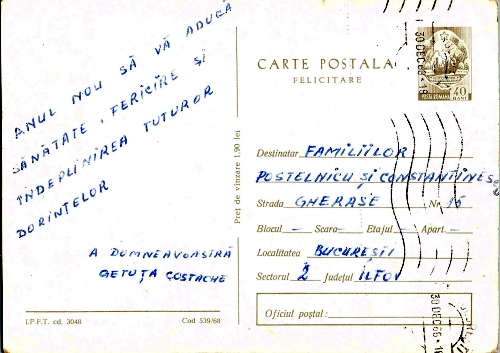 ANUL NOU SĂ VĂ ADUCĂ
SĂNĂTATE, FERICIRE ȘI
ÎNDEPLINIREA TUTUROR
DORINȚELOR
A DOMNEAVOASTRĂ
GETUȚA COSTACHE
I.P.F.T. cd. 3048
Cod 539/68
Preț de vînzare 1,90 lei
CARTE POSTALA
FELICITARE
30 DEC.68-18
POSTA ROMANA 40 BANI
Destinatar FAMILIILOR
POSTELNICU ȘI CONSTANTINESCU
Strada GHERASE Nr. 16
Blocul – Scara – Etajul – Apart –
Localitatea BUCUREȘTI
Sectorul 2 Județul ILFOV
Oficiul poștal:
30 DEC.68-18